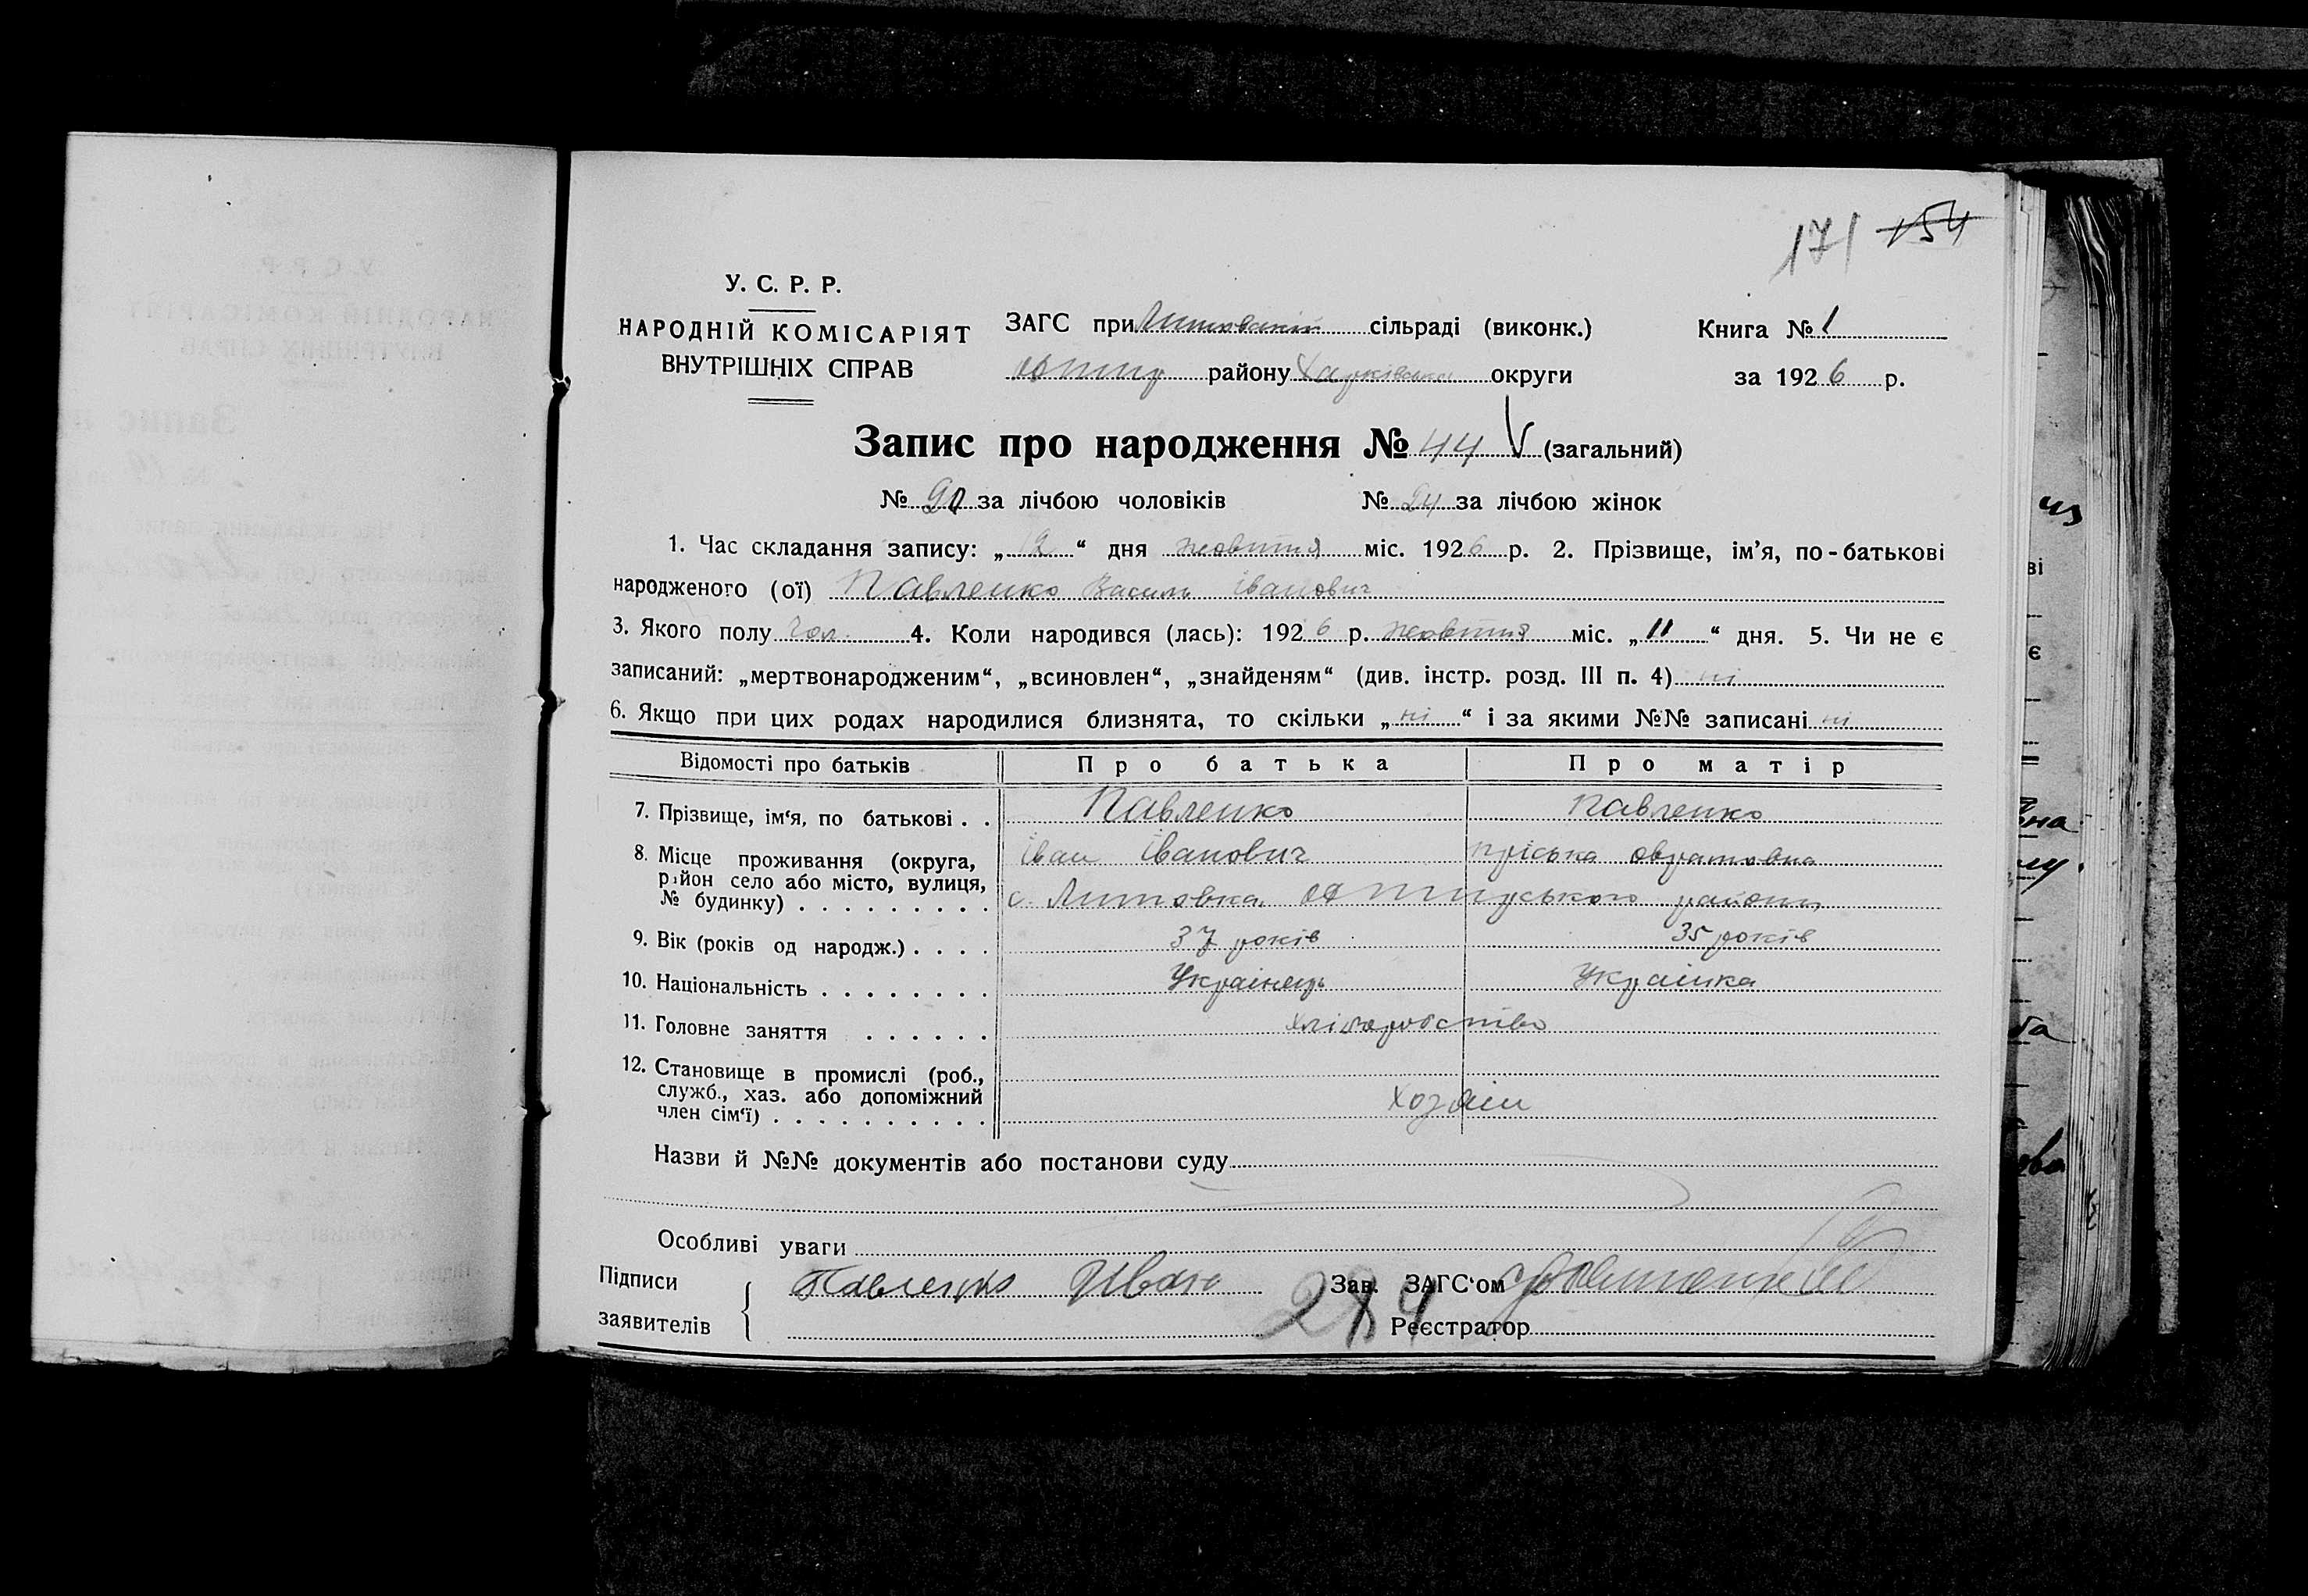 171 154
У. С. Р. Р.
НАРОДНІЙ КОМІСАРІЯТ
ВНУТРІШНІХ СПРАВ
ЗАГС при Литовській сільраді (виконк.)
району Харківська округи
Книга № 1
за 1926 р.
Запис про народження № 44 V (загальний)
№ 20 за лічбою чоловіків № 24 за лічбою жінок
1. Час складання запису: „ 12 “ дня жовтня міс. 1926 р. 2. Прізвище, ім’я, по-батькові
народженого (ої) Павленко Василь Іванович
3. Якого полу чол. 4. Коли народився (лась): 1926 р. жовтня міс. „ 11 “ дня. 5. Чи не є
записаний: „мертвонародженим“, „всиновлен“, „знайденям“ (див. інстр. розд. III п. 4) ні
6. Якщо при цих родах народилися близнята, то скільки „ ні “ і за якими №№ записані ні
Відомості про батьків Про батька Про матір
7. Прізвище, ім‘я, по батькові . . Павленко Павленко
8. Місце проживання (округа, Іван Іванович Пріська
район село або місто, вулиця,
№ будинку) . . . . . . . . . с. Литовка району
9. Вік (років од народж.) . . . . 37 років 35 років
10. Національність . . . . . . . . Українець Українка
11. Головне заняття . . . . . . хліборобство
12. Становище в промислі (роб.,
служб., хаз. або допоміжний Хозяін
член сім‘ї) . . . . . . . . . .
Назви й №№ документів або постанови суду
Особливі уваги
Підписи Павленко Иван Зав. ЗАГС‘ом
заявителів 284 Реєстратор